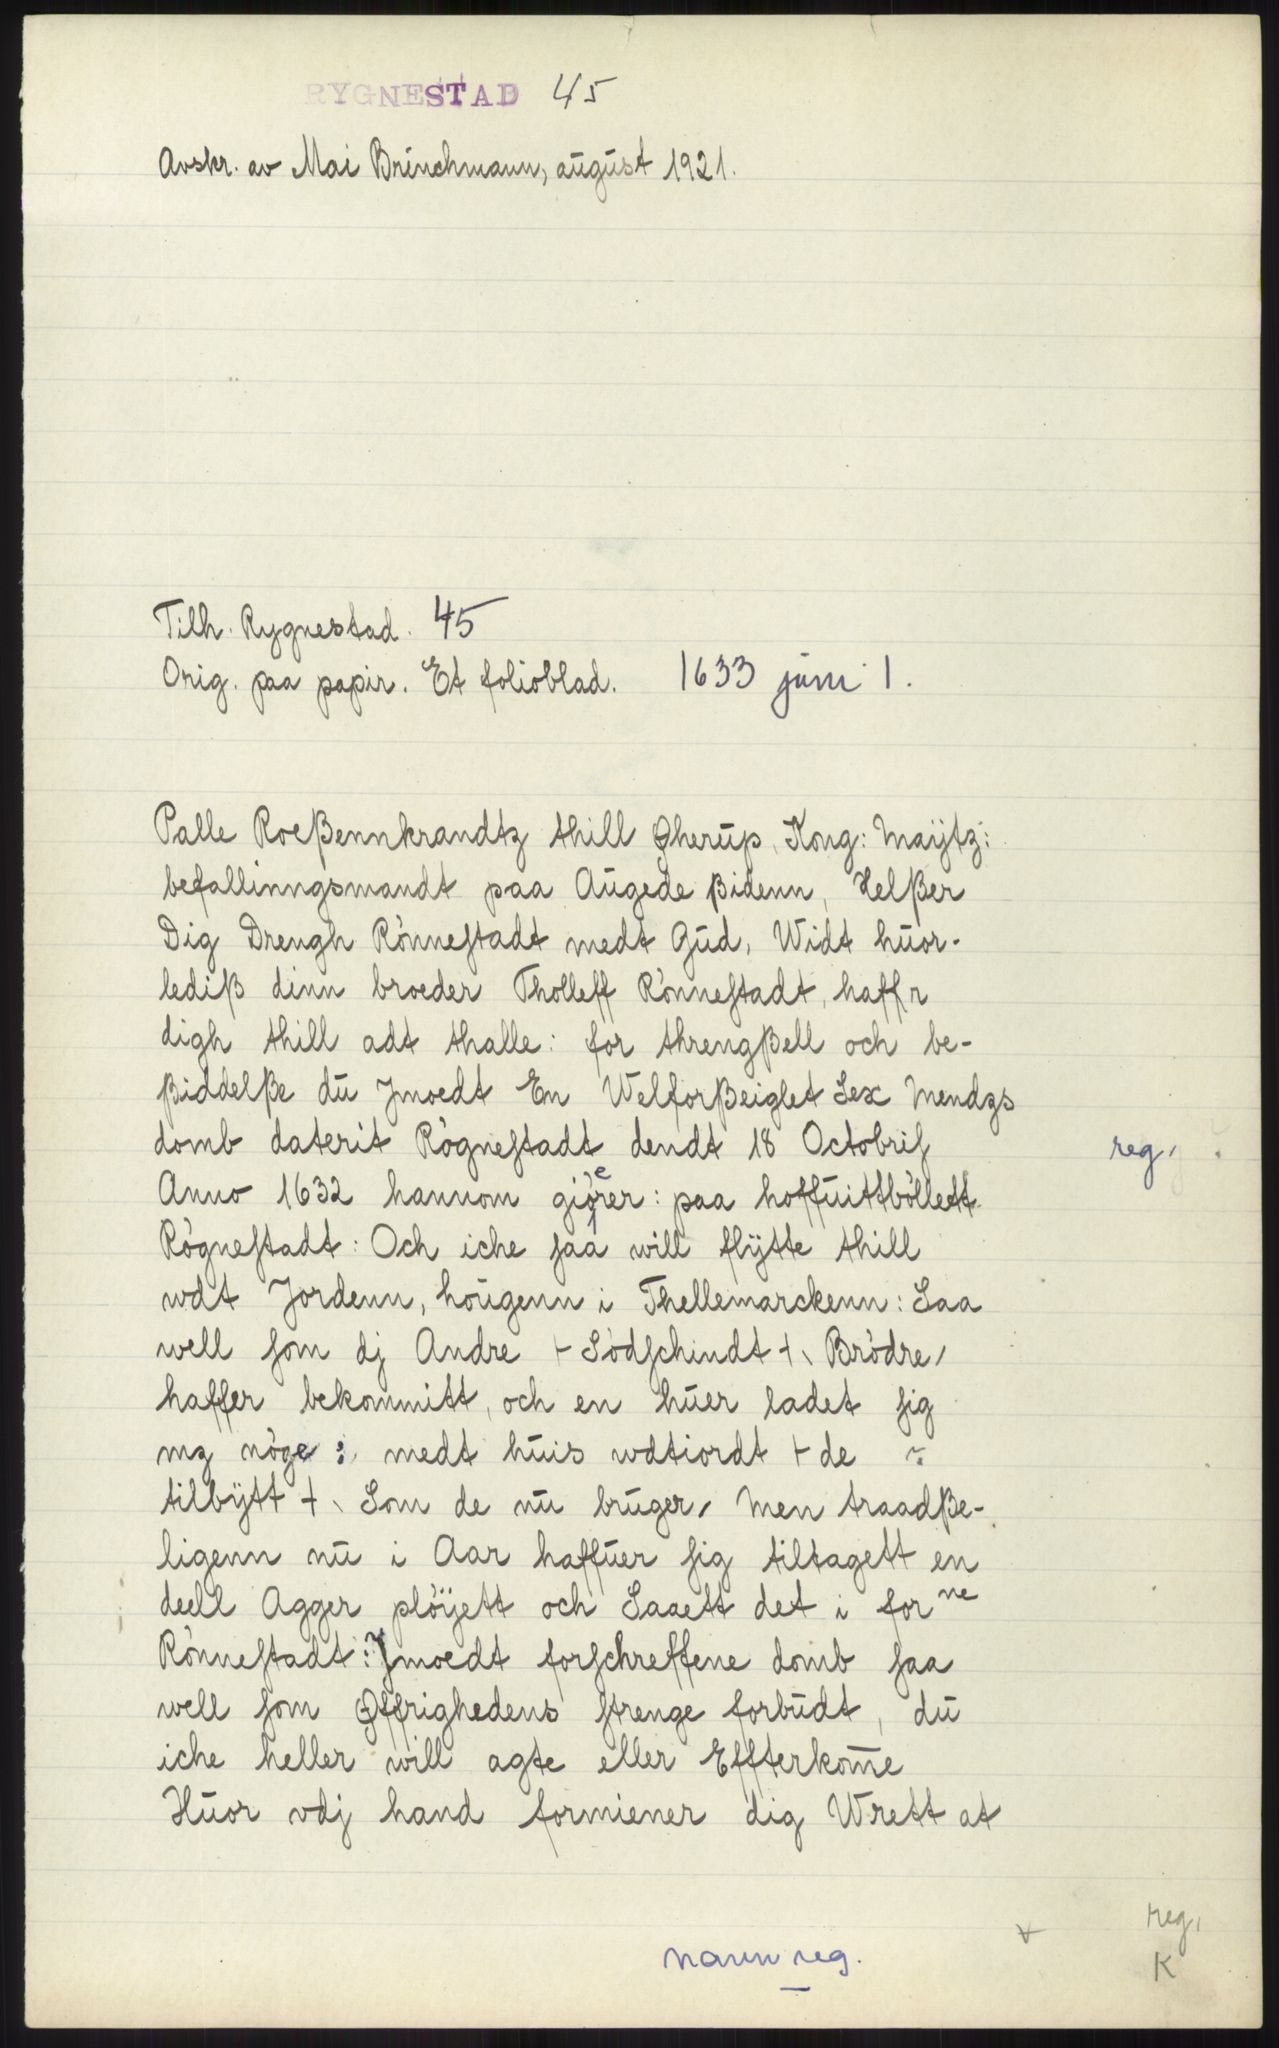 RYGNESTAD 45
Avskr. av Mai Brinchmann, august 1921.
Tilh. Rygnestad. 45
Orig. paa papir. Et folioblad. 1633 juni 1.
Palle Roeßennkrandtz thill Øherup, Kong: Maÿtz:
befallinngsmandt paa Augede ßidenn, Helßer
Dig Drengh Rönneſtadt medt Gud, Widt huor-
lediß dinn broeder Tholleff Rönneſtadt, haffr
digh thill adt thalle: for threngßell och be-
ßiddelße du Jmoedt En Welforßeiglet Sex Mendzs
domb daterit Rögneſtadt dendt 18 Octobriſ
reg.
Anno 1632 hannom giörer: paa hoffuittböllett
Rögneſtadt: Och iche ſaa will flÿtte thill
wdt Jordenn, hougenn i Thellemarckenn: Saa
well ſom dj Andre + Södſchindt +, Brödre,
haffer bekommitt, och en huer ladet ſig
mz nöge: medt huis wdtiordt + de
tilbÿtt +, Som de nu bruger, Men traadße-
ligenn nu i Aar haffuer ſig tiltagett en
deell Agger plöÿett och Saaett det i forne
Rönneſtadt: Jmoedt forſchreffene domb ſaa
well ſom Øffrighedens ſtrenge forbudt, du
iche heller will agte eller Effterkom̄e
Huor vdj hand formiener dig Wrett at
navn reg.
reg.
K